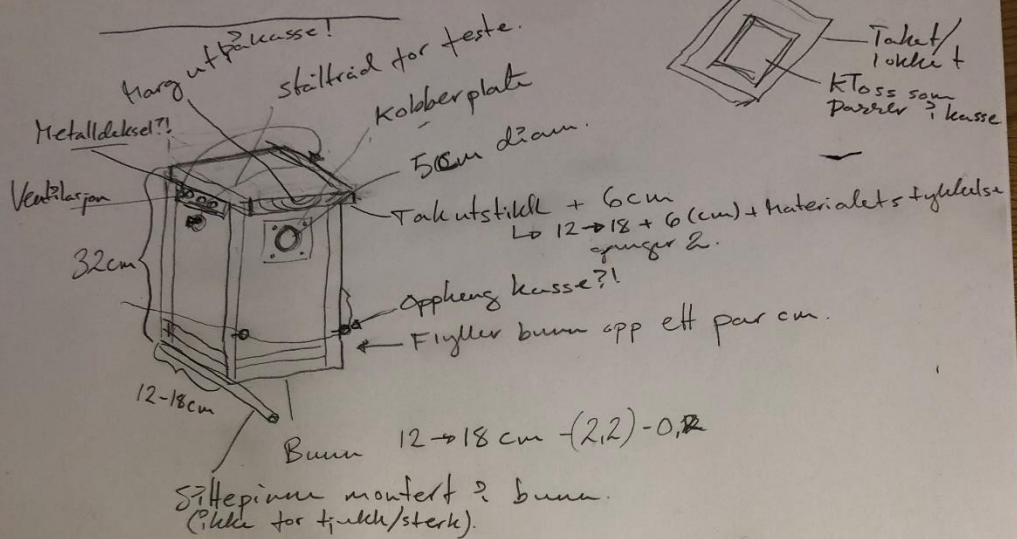 Marg ut på kasse!
ståltråd for feste.
Kobberplate
Metalldeksel?!
5cm diam.
Ventilasjon
Tak utstikk + 6cm
↳ 12→18 + 6 (cm) + Materialets tykkelse
ganger 2.
32cm
Oppheng kasse?!
← Fyller bunn opp ett par cm.
12-18cm
Bunn 12→18 cm -(2,2)-0,2
Sittepinne montert i bunn.
(ikke for tjukk/sterk).
Taket/
lokket
Kloss som
passer i kasse